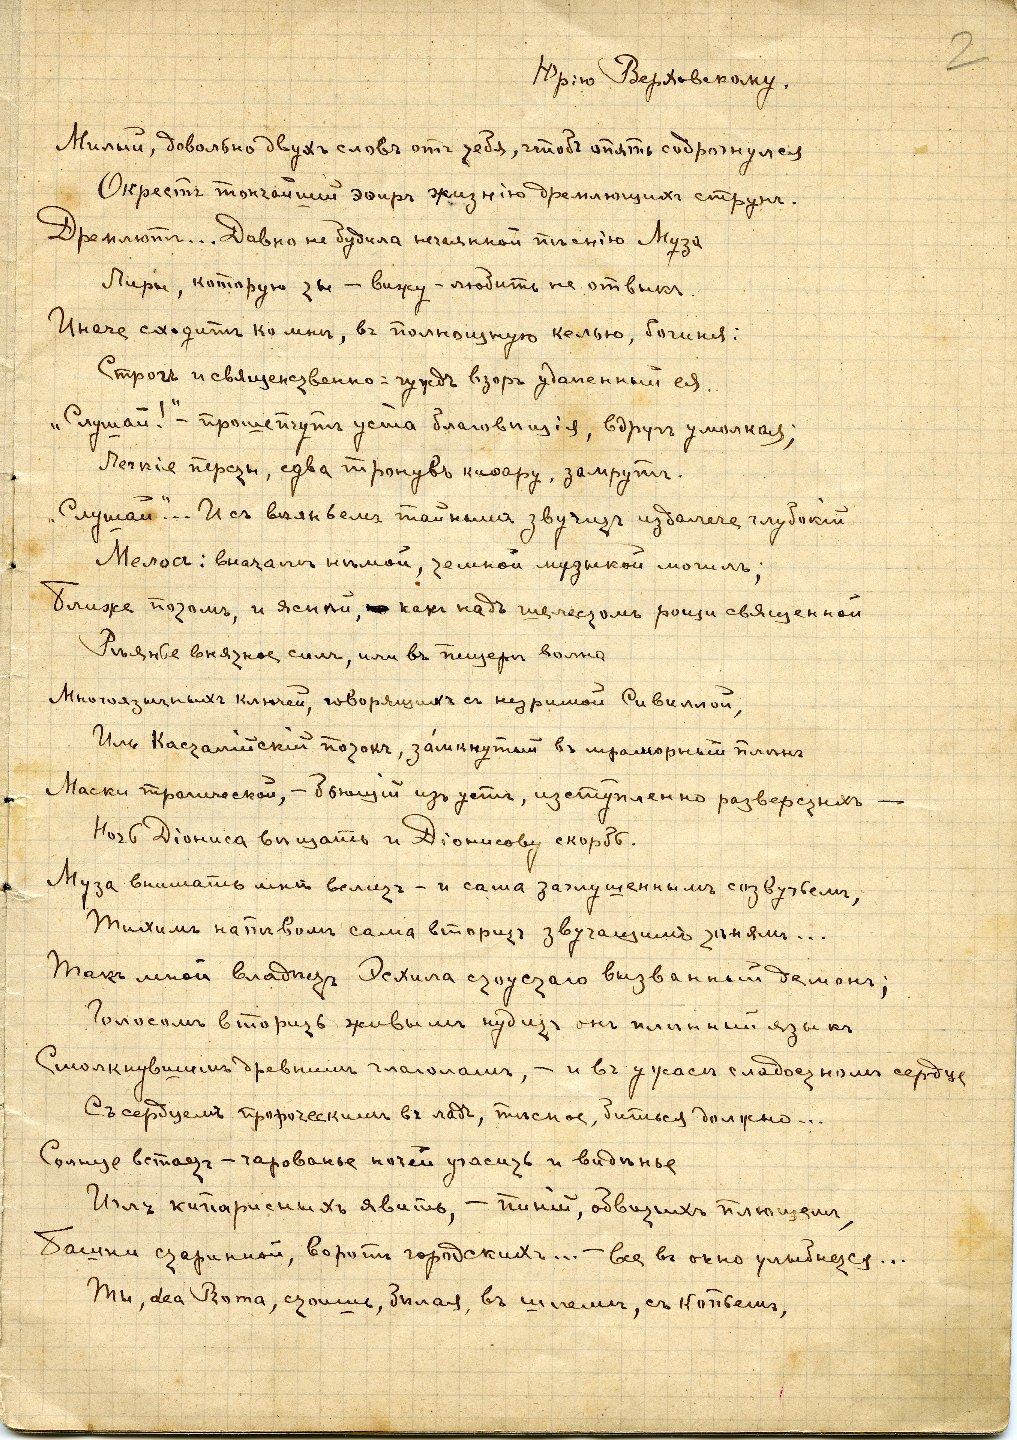 2
Юрію Верховскому.
Милый, довольно двухъ словъ отъ тебя, чтобъ опять содрогнулся
Окрестъ тончайшій эѳиръ жизнію дремлющихъ струнъ.
Дремлютъ... Давно не будила нечаянной пѣснію Муза
Лиры, которую ты – вижу – любить не отвыкъ.
Иначе сходитъ ко мнѣ, въ полнощную келью, богиня:
Строгъ и священственно-чуждъ взоръ удаленный ея.
„Слушай!" – прошепчутъ уста благовѣщія, вдругъ умолкая;
Легкіе персты, едва тронувъ киѳару, замрутъ.
„Слушай"... И съ вѣяньемъ тайнымъ звучитъ издалече глубокій
Мелосъ: вначалѣ нѣмой, темной музыкой могилъ;
Ближе потомъ, и яснѣй, какъ надъ шелестомъ рощи священной
Рѣянье внятное силъ, или въ пещерѣ волна
Многоязычныхъ ключей, говорящихъ съ незримой Сивиллой,
Иль Касталійскій потокъ, за́мкнутый въ мраморный плѣнъ
Маски трагической, – бьющій изъ устъ, изступленно разверстыхъ –
Ночь Діониса вѣщать и Діонисову скорбь.
Муза внимать мнѣ велитъ – и сама заглушеннымъ созвучьемъ,
Тихимъ напѣвомъ сама вторитъ звучащимъ тѣнямъ...
Такъ мной владѣетъ Эсхила стоустаго вызванный демонъ;
Голосомъ вторить живымъ нудитъ онъ плѣнный языкъ
Смолкнувшимъ древнимъ глаголамъ, – и въ ужасѣ сладостномъ сердце
Съ сердцемъ пророческимъ въ ладъ, тѣсное, биться должно...
Солнце встаетъ – чарованье ночей угасить и видѣнье
Иглъ кипарисныхъ явить, – пиній, обвитыхъ плющемъ,
Башни старинной, воротъ городскихъ... – все въ окно улыбнется...
Ты, dea Roma, стоишь, бѣлая, въ шлемѣ, съ копьемъ,